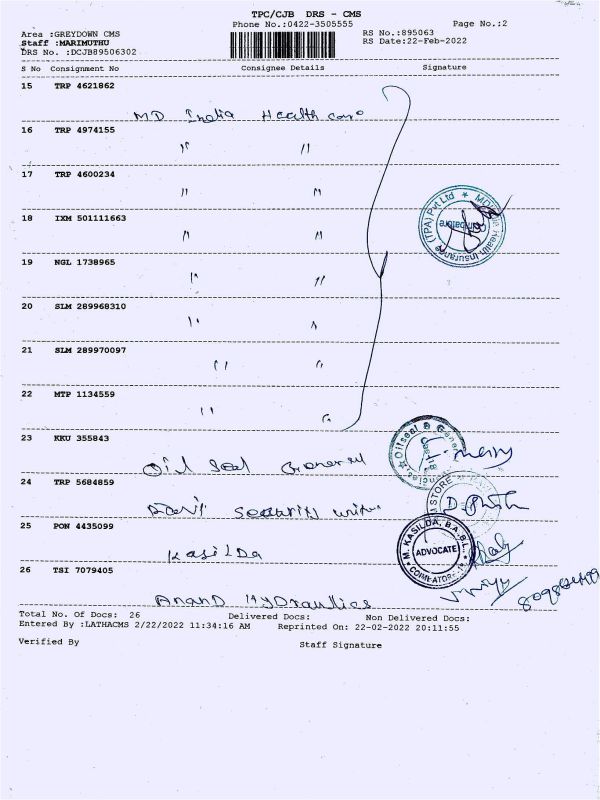 TPC/CJB DRS - CMS
Phone No.:0422-3505555 Page No.:2
Area :GREYDOWN CMS RS No.:895063
Staff :MARIMUTHU RS Date:22-Feb-2022
DRS No. :DCJB89506302
S No Consignment No Consignee Details Signature
15 TRP 4621862
MD India Health care
16 TRP 4974155
" "
17 TRP 4600234
" "
18 IXM 501111663
" "
19 NGL 1738965
" "
20 SLM 289968310
" "
21 SLM 289970097
" "
22 MTP 1134559
" "
23 KKU 355843
Oil Seal General
24 TRP 5684859
Security
25 PON 4435099
Kasilda
26 TSI 7079405
Anand Hydraulics
Health Insurance (TPA) Pvt Ltd
Coimbatore
Oilseal & General
STORE
M. KASILDA, B.A.B.L.
ADVOCATE
COIMBATORE
Total No. Of Docs: 26 Delivered Docs: Non Delivered Docs:
Entered By :LATHACMS 2/22/2022 11:34:16 AM Reprinted On: 22-02-2022 20:11:55
Verified By Staff Signature